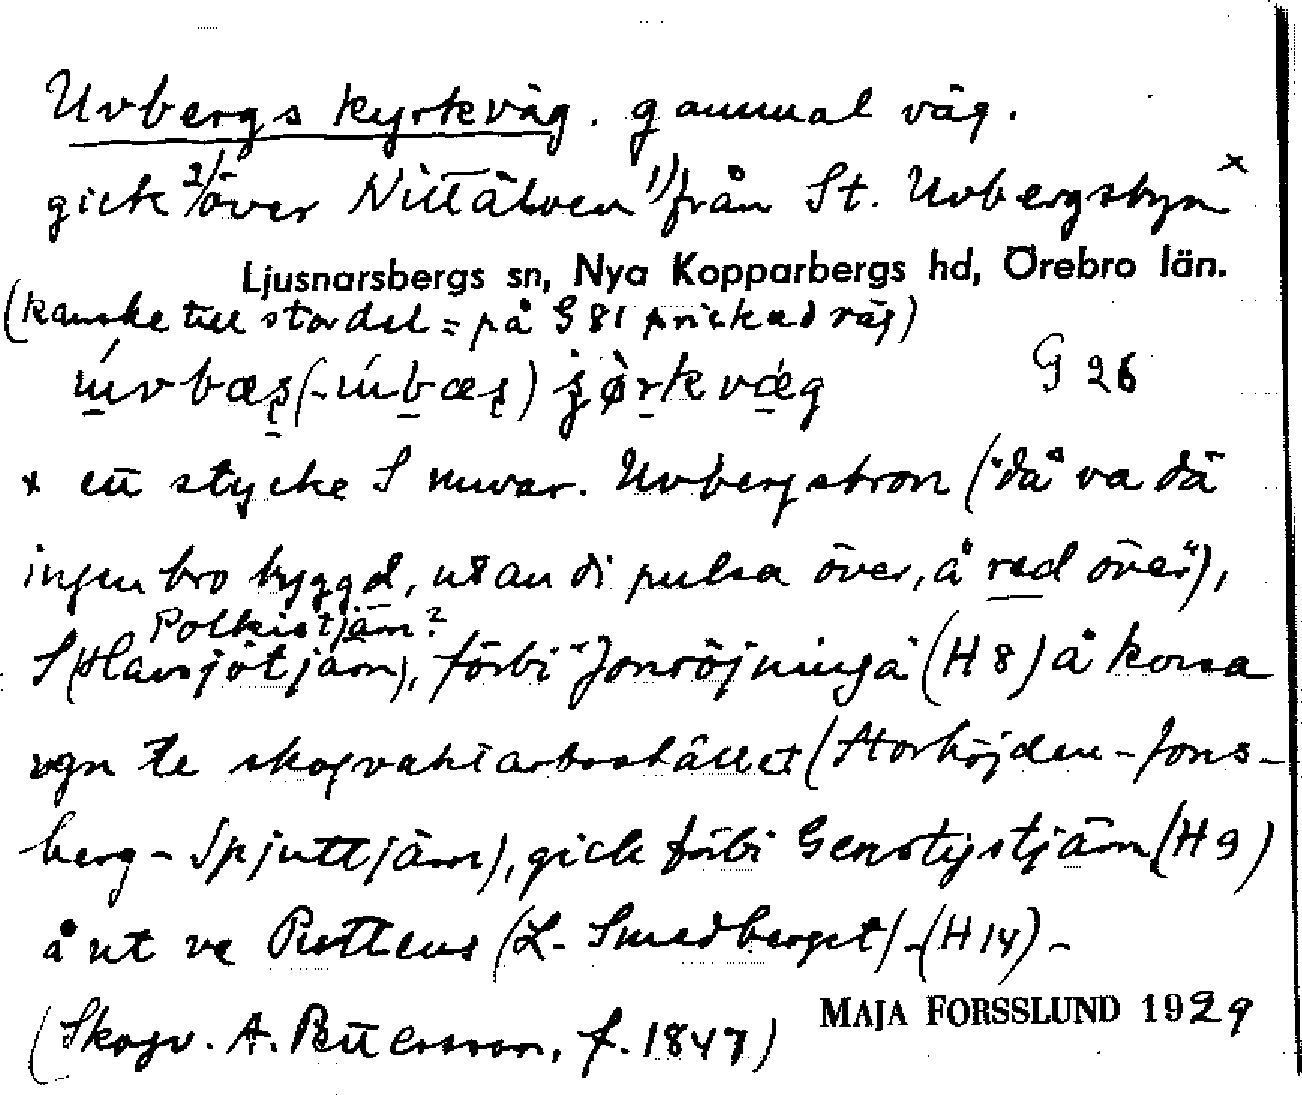 Uvbergs kyrkväg. gammal väg.
gick 2/över Nittälven 1/från St. Uvbergsbyn x
Ljusnarsbergs sn, Nya Kopparbergs hd, Örebro län.
(kanske till stor del = på G 81 prickad väg)
G 26
x ett stycke S nuvar. Uvbergsbron ("då va dä
ingen bro byggd, utan di pulsa över, å red över"),
Polkistjärn?
S (Havsjötjärn), förbi "Jonsröjninga" (H 8) å korsa
vgn te skogvaktarbostället (Storhöjden - Jons-
berg - Spjuttjärn), gick förbi Genstigstjärn (H 9)
å ut ve Puttens (L. Smedberget) - (H 14) -
(Skogv. A. Pettersson, f. 1847)
MAJA FORSSLUND 1929